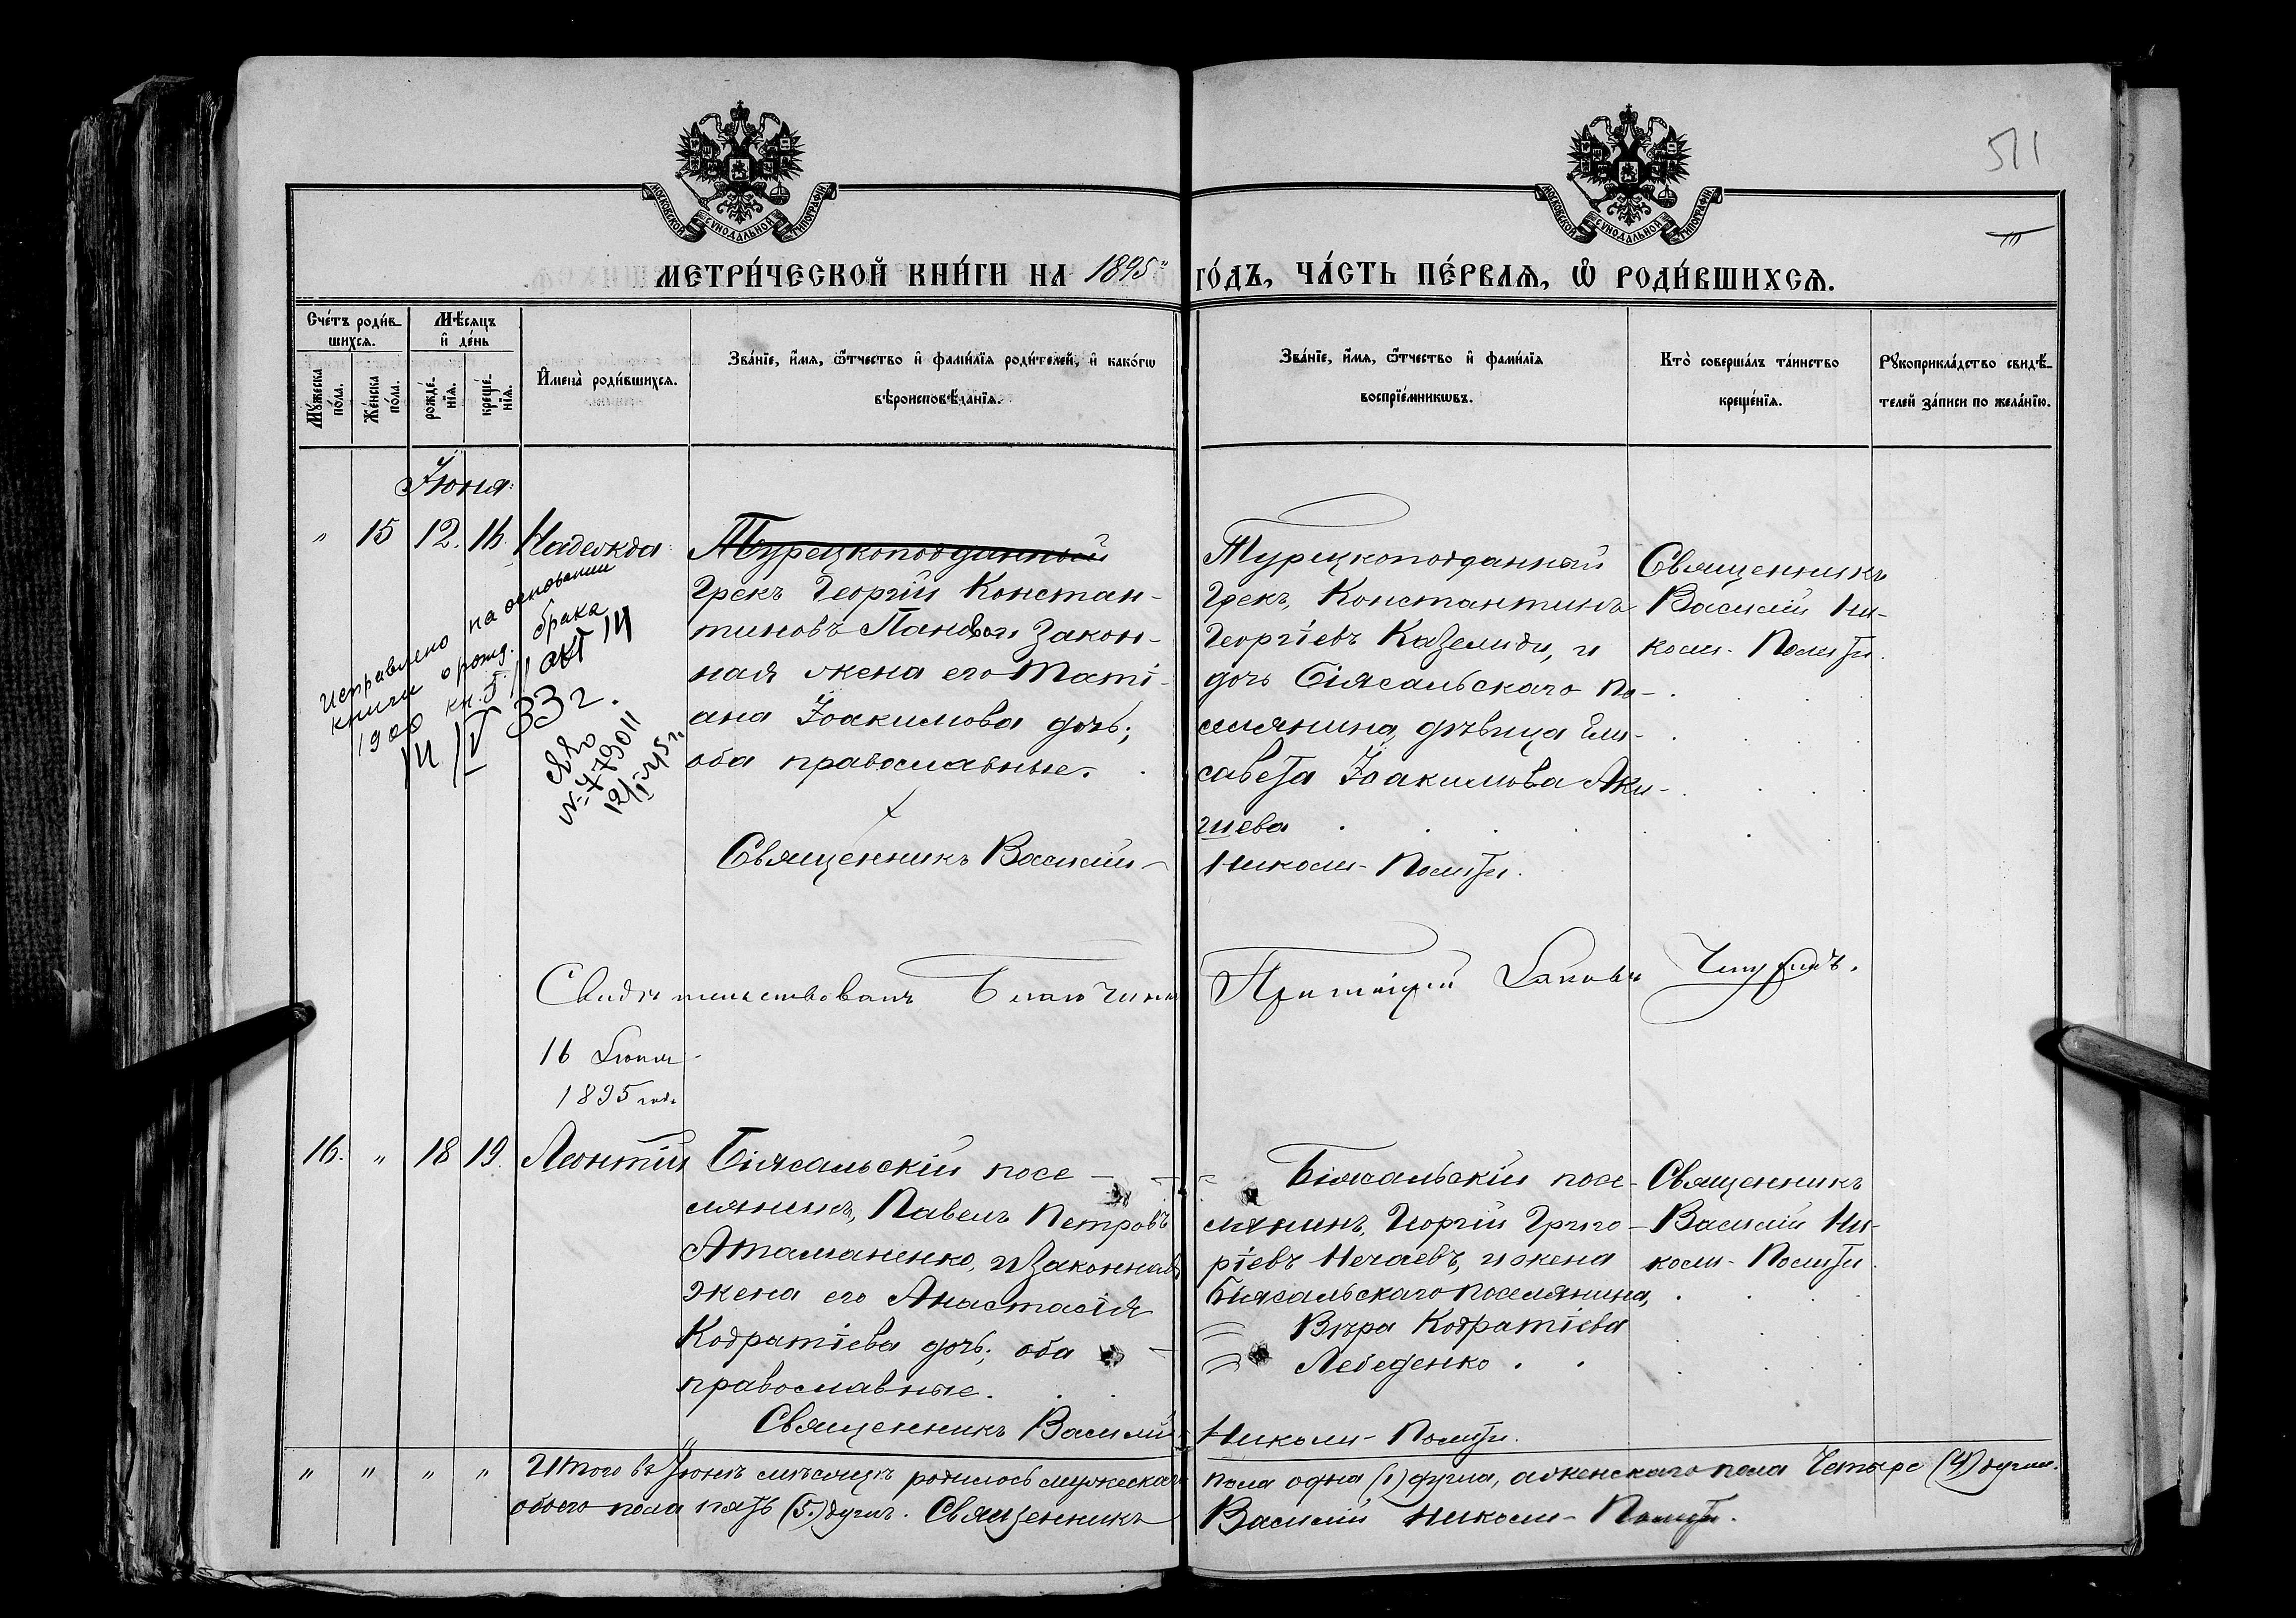 511
МОСКОВСКОЙ СѴНОДАЛЬНОЙ ТИПОГРАФІИ
МОСКОВСКОЙ СѴНОДАЛЬНОЙ ТИПОГРАФІИ
МЕТРИ́ЧЕСКОЙ КНИ́ГИ НА 1895 ГО́ДЪ, ЧА́СТЬ ПЕ́РВАѦ, Ѡ҆ РОДИ́ВШИХСѦ.
Счéтъ роди́в-
шихсѧ.
Мѣ́сѧцъ
и҆ дéнь
Мꙋ́жеска
по́ла.
Жéнска
по́ла.
рождé-
нїѧ.
крещé-
нїѧ.
И҆менà роди́вшихсѧ.
Звáнїе, и҆́мѧ, ѻ҆́тчество и҆ фами́лїѧ роди́телей, и҆ какóгѡ
вѣроисповѣ́данїѧ.
Звáнїе, и҆́мѧ, ѻ҆́тчество и҆ фами́лїѧ
воспрїéмникѡвъ.
Ктò совершáлъ тáинство
крещéнїѧ.
Рꙋкоприклáдство свидѣ́-
телей зáписи по желáнїю.
Іюня
" 15 12. 14. Надежда
Турецкоподданный
Грекъ Георгій Констан-
тиновъ Закон-
ная жена его Таті-
ана Іоакимова дочь;
оба православные.
Священникъ Василій
Турецкоподданный
Грекъ, Константинъ
Георгіевъ Каземиди, и
дочь Біясальскаго по-
селянина, дѣвица Ели-
савета Іоакимова Аки-
шева
Николи-Полити.
Священникъ
Василій Ни-
коли-Полити.
Исправлено на основании
книги о рожд. брака
1900 кн. 5. 11 окт 14
14/IV 33 г.
№ 779011
12/I 45 г.
Свидѣтельствовалъ Благочинн
Протоіерей Іаковъ
16 Іюля
1895 года
16. " 18 19. Леонтій
Біясальскій посе-
лянинъ, Павелъ Петровъ
Атаманенко, и законная
жена его Анастасія
Кодратіева дочь; оба
православные.
Священникъ Василій
Біясальскій посе-
лянинъ, Георгій Григо-
ріевъ Нечаевъ, и жена
Біясальскаго поселянина,
Вѣра Кодратіева
Лебеденко.
Николи-Полити.
Священникъ
Василій Ни-
коли-Полити.
" " " " Итого въ Іюнѣ мѣсяцѣ родилось мужескаго пола одна (1) душа, а женскаго пола Четыре (4) души.
обоего пола пять (5.) душъ. Священникъ Василій Николи-Полити.